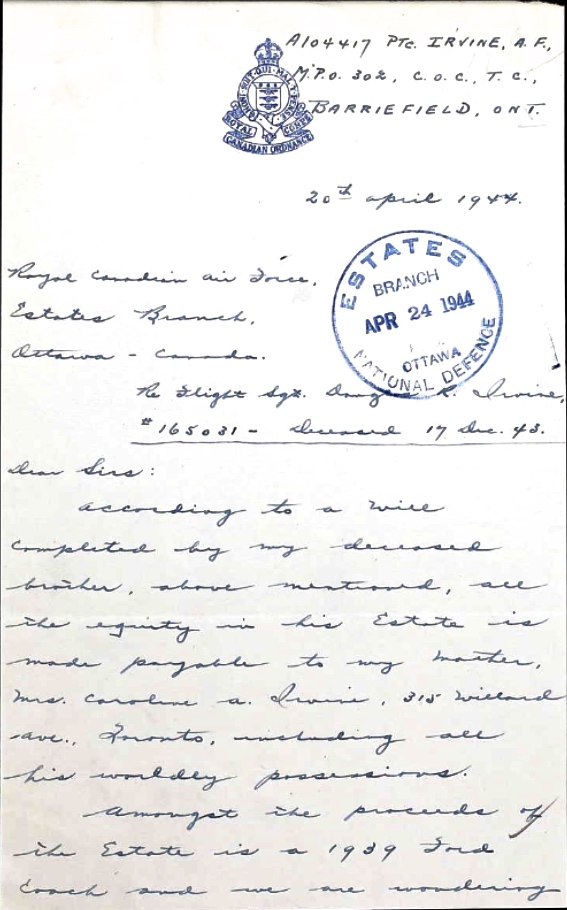 A104417 Pte. IRVINE, A. F.,
M.P.O. 302, C.O.C., T.C.,
BARRIEFIELD, ONT.
HONI SOIT QUI MAL Y PENSE
ROYAL CORPS
CANADIAN ORDNANCE
20th April 1944.
ESTATES
BRANCH
APR 24 1944
OTTAWA
NATIONAL DEFENCE
Royal Canadian Air Force,
Estates Branch,
Ottawa - Canada.
Re Flight Sgt. Douglas R. Irvine,
# 165031 - Deceased 17 Dec. 43.
Dear Sirs:
According to a Will
completed by my deceased
brother, above mentioned, all
the equity in his Estate is
made payable to my Mother,
Mrs. Caroline A. Irvine, 315 Willard
Ave., Toronto, including all
his worldly possessions.
Amongst the proceeds of
the Estate is a 1939 Ford
Coach and we are wondering